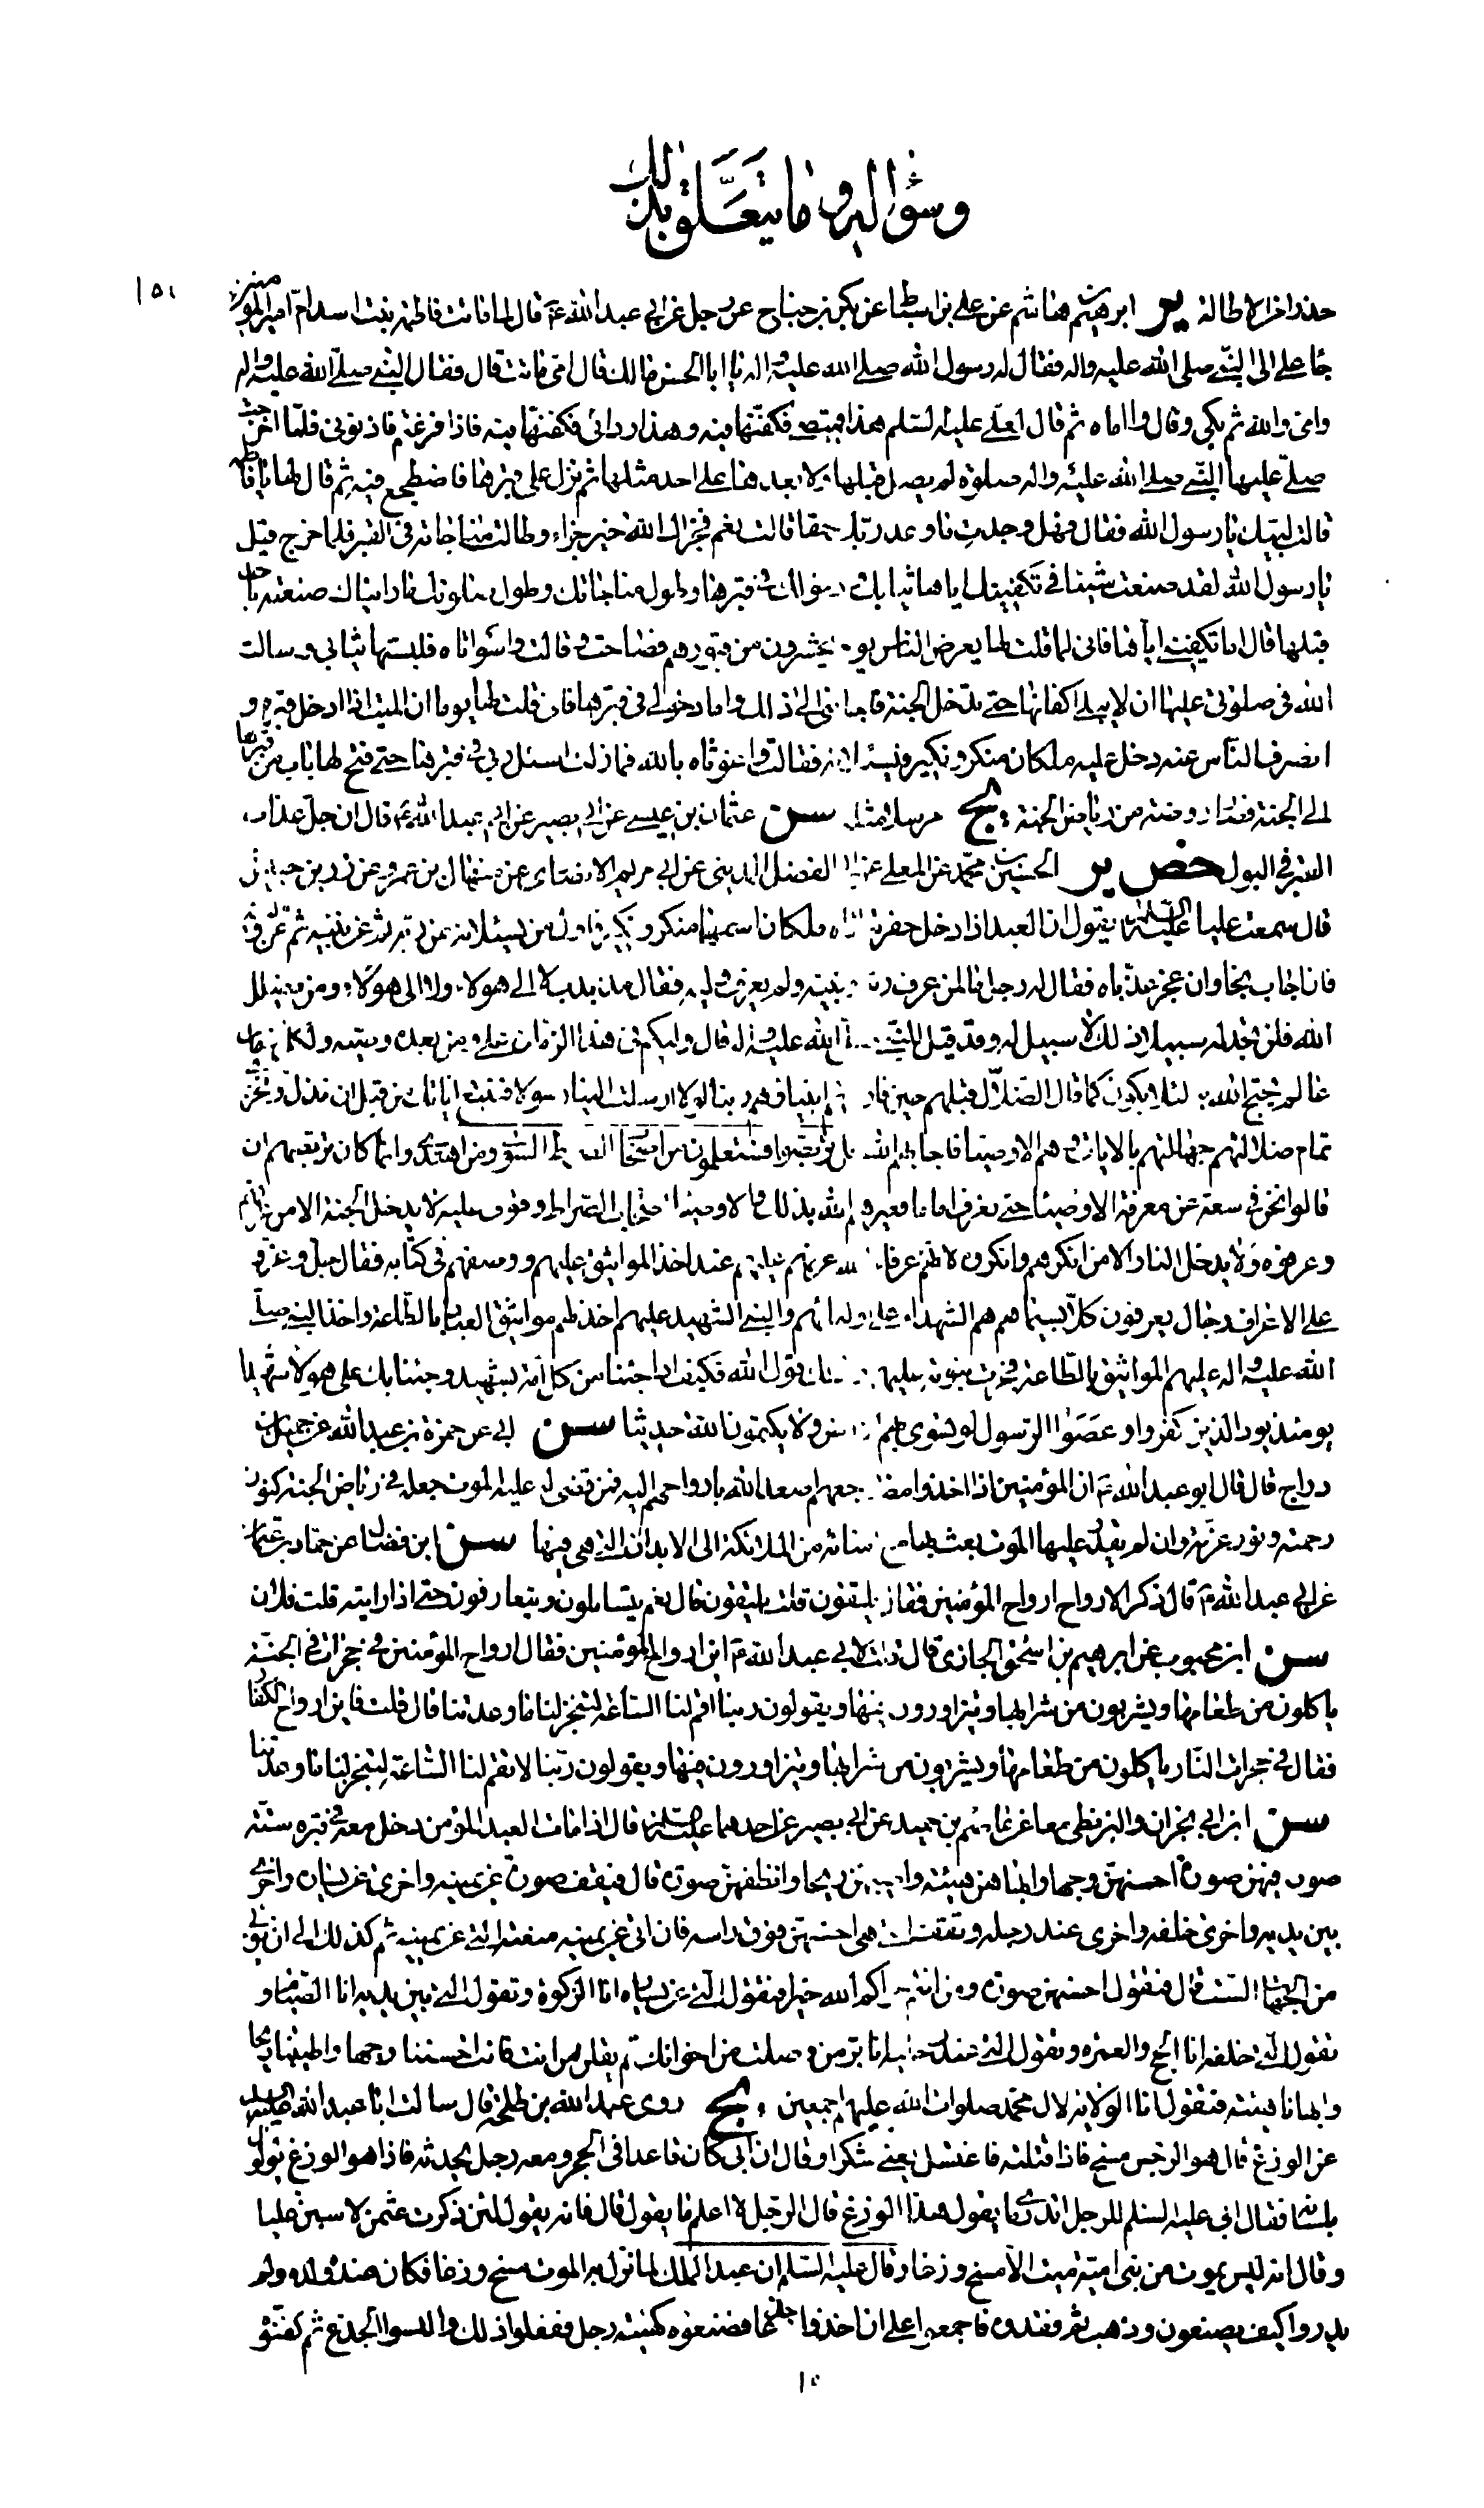 وسؤاله وما يتعلق بذلك
١٥١
حذرا من الاطالة ير ابرهيم بن هاشم عن علي بن اسباط عن بكر بن جناح عن رجل عن ابي عبد الله ع قال لما ماتت فاطمة بنت اسد ام امير المؤمنين
جاء علي الى النبي صلى الله عليه واله فقال له رسول الله صلى الله عليه واله يا ابا الحسن مالك قال امي ماتت قال فقال النبي صلى الله عليه واله
وامي والله ثم بكى وقال وا اماه ثم قال لعلي عليه السلم هذا قميصي فكفنها فيه وهذا ردائي فكفنها فيه فاذا فرغتم فاذنوني فلما اخرجت
صلى عليها النبي صلى الله عليه واله صلوة لم يصل قبلها ولا بعدها على احد مثلها ثم نزل على قبرها فاضطجع فيه ثم قال لها يا فاطمة
قالت لبيك يا رسول الله فقال فهل وجدت ما وعد ربك حقا قالت نعم فجزاك الله خير جزاء وطالت مناجاته في القبر فلما خرج قيل
يا رسول الله لقد صنعت شيئا في تكفينك اياها ثيابك ودخولك في قبرها وطول مناجاتك وطول صلوتك ما رايناك صنعته باحد
قبلها قال اما تكفيني اياها فاني لما قلت لها يعرض الناس يوم يحشرون من قبورهم فصاحت وقالت واسواتاه فلبستها ثيابي وسالت
الله في صلوتي عليها ان لا يبلى اكفانها حتى تدخل الجنة فاجابني الى ذلك واما دخولي في قبرها فاني قلت لها يوما ان الميت اذا ادخل قبره و
انصرف الناس عنه دخل عليه ملكان منكر ونكير فيسئلانه فقالت واغوثاه بالله فما زلت اسئل ربي في قبرها حتى فتح لها باب من قبرها
الى الجنة فصار روضة من رياض الجنة يج مرسلا مثله سن عثمان بن عيسى عن ابي بصير عن ابي عبد الله ع قال ان جل عذاب
القبر في البول خص ير الحسين بن محمد عن المعلى عن ابي الفضل المديني عن ابي مريم الانصاري عن منهال بن عمرو عن زر بن حبيش
قال سمعت عليا عليه السلم يقول ان العبد اذا دخل حفرته اتاه ملكان اسمهما منكر ونكير فاول من يسئلانه عن ربه ثم عن نبيه ثم عن وليه
فان اجاب نجا وان عجز عذباه فقال له رجل ما لمن عرف ربه ونبيه ولم يعرف وليه فقال مذبذب لا الى هؤلاء ولا الى هؤلاء ومن يضلل
الله فلن تجد له سبيلا ذلك لا سبيل له وقد قيل للنبي صلى الله عليه واله قال وليكم في هذا الزمان علي ومن بعده وصيه ولكل زمان
عالم يحتج الله به لئلا يكون كما قال الضلال قبلهم حين فارقتهم انبياؤهم ربنا لولا ارسلت الينا رسولا فنتبع اياتك من قبل ان نذل ونخزى
تمام ضلالتهم جهالتهم بالايات وهم الاوصياء فاجابهم الله قل تربصوا فستعلمون من اصحاب الصراط السوي ومن اهتدى وانما كان تربصهم ان
قالوا نحن في سعة عن معرفة الاوصياء حتى نعرف اماما فعيرهم الله بذلك فالاوصياء اصحاب الصراط وقوف عليه لا يدخل الجنة الا من عرفهم
وعرفوه ولا يدخل النار الا من انكرهم وانكروه لانهم عرفاء الله عرفهم عليهم عند اخذ المواثيق عليهم ووصفهم في كتابه فقال جل وعز و
على الاعراف رجال يعرفون كلا بسيماهم هم الشهداء على اوليائهم والنبي الشهيد عليهم اخذ لهم مواثيق العباد بالطاعة واخذ النبي صلى
الله عليه واله عليهم المواثيق بالطاعة فجرت نبوته عليهم وذلك قول الله فكيف اذا جئنا من كل امة بشهيد وجئنا بك على هؤلاء شهيدا
يومئذ يود الذين كفروا وعصوا الرسول لو تسوى بهم الارض ولا يكتمون الله حديثا سن ابي عن حمزة بن عبد الله عن جميل بن
دراج قال قال ابو عبد الله ع ان المؤمنين اذا اخذوا مضاجعهم اصعد الله بارواحهم اليه فمن قضى له عليه الموت جعله في رياض الجنة كنوز
رحمته ونور عزته وان لم يقدر عليها الموت بعث بها مع امنائه من الملائكة الى الابدان التي هي فيها سن ابن فضال عن حماد بن عثمان
عن ابي عبد الله ع قال ذكر الارواح ارواح المؤمنين فقال يلتقون قلت يلتقون قال نعم يتساءلون ويتعارفون حتى اذا رايته قلت فلان
سن ابن محبوب عن ابرهيم بن اسحق الجازي قال قلت لابي عبد الله ع اين ارواح المؤمنين فقال ارواح المؤمنين في حجرات في الجنة
ياكلون من طعامها ويشربون من شرابها ويتزاورون فيها ويقولون ربنا اقم لنا الساعة لتنجز لنا ما وعدتنا قال قلت فاين ارواح الكفار
فقال في حجرات النار ياكلون من طعامها ويشربون من شرابها ويتزاورون فيها ويقولون ربنا لا تقم لنا الساعة لتنجز لنا ما وعدتنا
سن ابن ابي نجران والبزنطي معا عن عاصم بن حميد عن ابي بصير عن احدهما عليهما السلم قال اذا مات العبد المؤمن دخل معه في قبره ستة
صور فيهن صورة احسنهن وجها وابهاهن هيئة واطيبهن ريحا وانظفهن صورة قال فيقف صورة عن يمينه واخرى عن يساره واخرى
بين يديه واخرى خلفه واخرى عند رجله وتقف التي هي احسنهن فوق راسه فان اتي عن يمينه منعته التي عن يمينه ثم كذلك الى ان يؤتى
من الجهات الست قال فتقول احسنهن صورة ومن انتم جزاكم الله خيرا فتقول التي عن يمين العبد انا الصلوة وتقول التي عن يساره انا الزكوة وتقول التي بين يديه انا الصيام و
تقول التي خلفه انا الحج والعمرة وتقول التي عند رجليه انا بر من وصلت من اخوانك ثم يقلن من انت فانت احسننا وجها واطيبنا ريحا
وابهانا هيئة فتقول انا الولاية لال محمد صلوات الله عليهم اجمعين يج روى عبد الله بن طلحة قال سالت ابا عبد الله عليه السلم
عن الوزغ قال هو الرجس مسخ فاذا قتلته فاغتسل يعني شكرا وقال ان ابي كان قاعدا في الحجر ومعه رجل يحدثه فاذا هو الوزغ يولول
بلسانه فقال ابي عليه السلم للرجل اتدري ما يقول هذا الوزغ قال الرجل لا اعلم ما يقول قال فانه يقول لئن ذكرت عثمن لاسبن عليا
وقال انه ليس يموت من بني امية ميت الا مسخ وزغا وقال عليه السلم ان عبد الملك لما نزل به الموت مسخ وزغا فكان عنده ولده ولم
يدروا كيف يصنعون وذهب ثم فقدوه فاجمعوا على ان اخذوا جذعا فصنعوه كهيئة رجل ففعلوا ذلك والبسوا الجذع ثم كفنوه